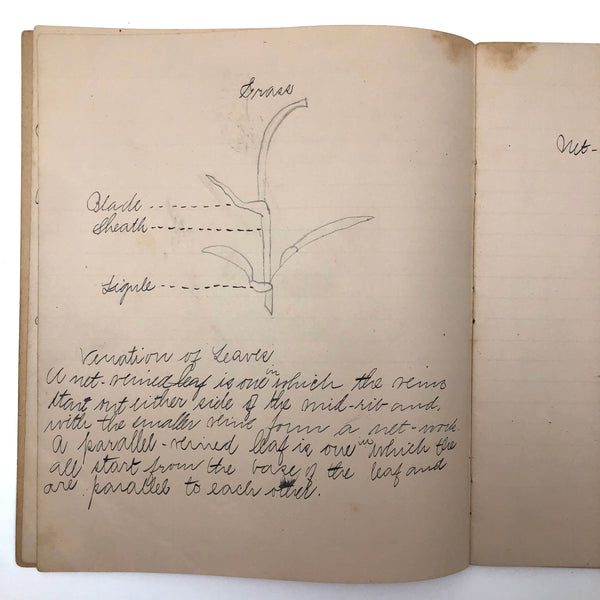 Grass
Blade
Sheath
Ligule
Net-
Venation of Leaves
A net-veined leaf is one in which the veins
start out either side of the mid-rib and
with the smaller veins form a net-work.
A parallel-veined leaf is one in which the
all start from the base of the leaf and
are parallel to each other.